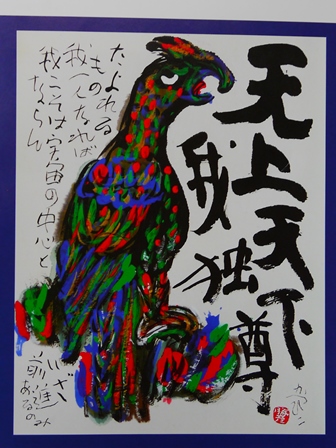 天上天下
我独尊
たよれる
もの
我一人なれば
我こそは宇宙の中心と
ならん
いざ
前進
あるのみ